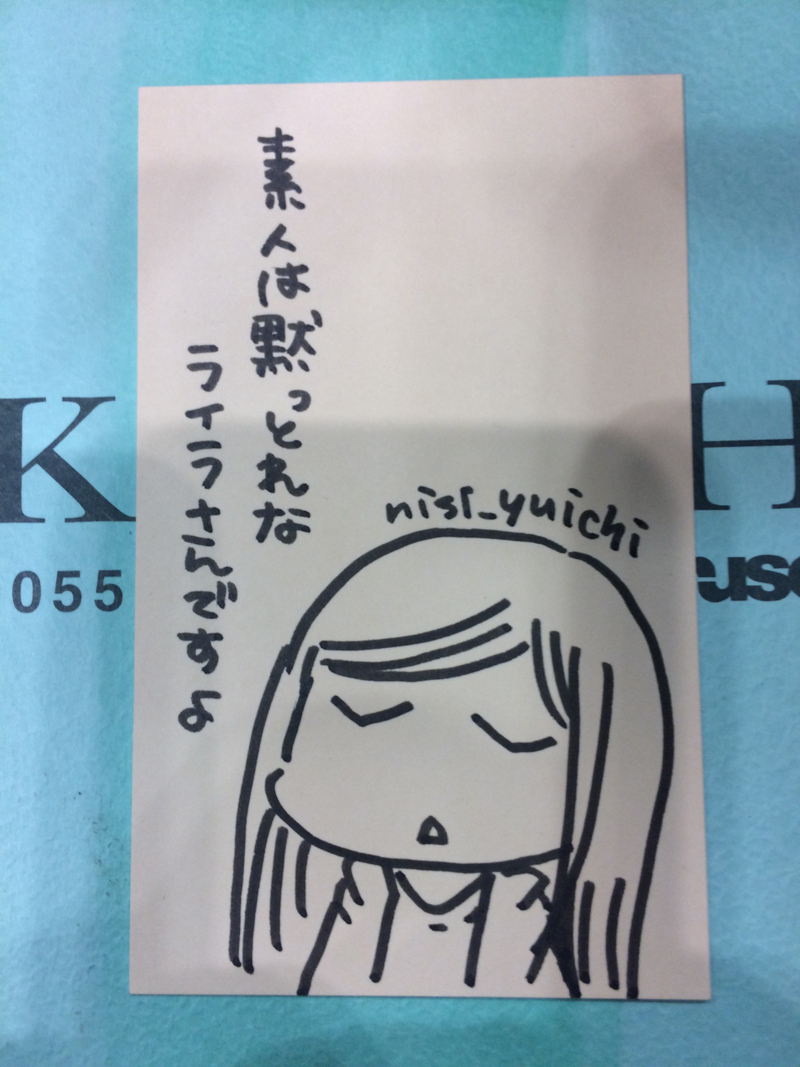 素人は黙っとれな
ライラさんですよ
nisi_yuichi
K
H
055
use